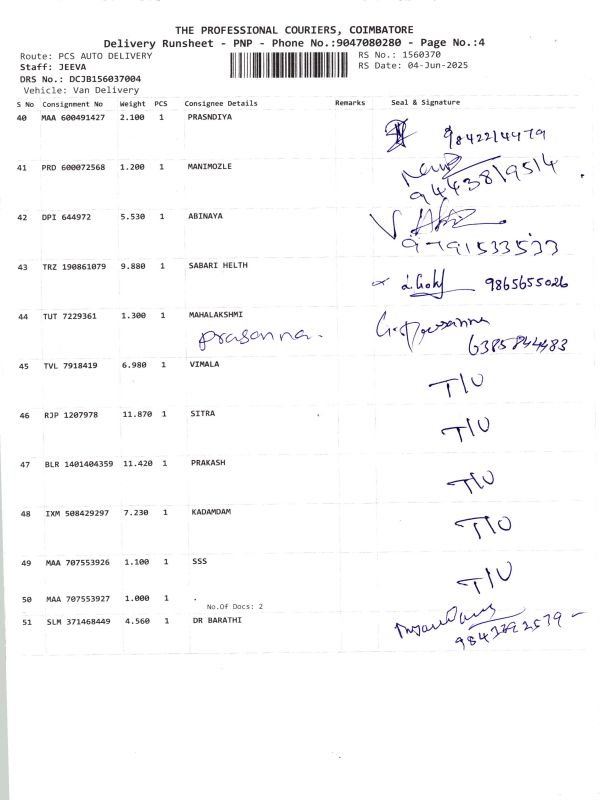 THE PROFESSIONAL COURIERS, COIMBATORE
Delivery Runsheet - PNP - Phone No.:9047080280 - Page No.:4
Route: PCS AUTO DELIVERY RS No.: 1560370
Staff: JEEVA RS Date: 04-Jun-2025
DRS No.: DCJB156037004
Vehicle: Van Delivery
S No Consignment No Weight PCS Consignee Details Remarks Seal & Signature
40 MAA 600491427 2.100 1 PRASNDIYA
9842214479
41 PRD 600072568 1.200 1 MANIMOZLE
9443819514
42 DPI 644972 5.530 1 ABINAYA
9791533533
43 TRZ 190861079 9.880 1 SABARI HELTH
9865655026
44 TUT 7229361 1.300 1 MAHALAKSHMI
prasanna. G. Prasanna
6385844483
45 TVL 7918419 6.980 1 VIMALA
T/U
46 RJP 1207978 11.870 1 SITRA
T/U
47 BLR 1401404359 11.420 1 PRAKASH
T/U
48 IXM 508429297 7.230 1 KADAMDAM
T/U
49 MAA 707553926 1.100 1 SSS
T/U
50 MAA 707553927 1.000 1 .
No.Of Docs: 2
51 SLM 371468449 4.560 1 DR BARATHI